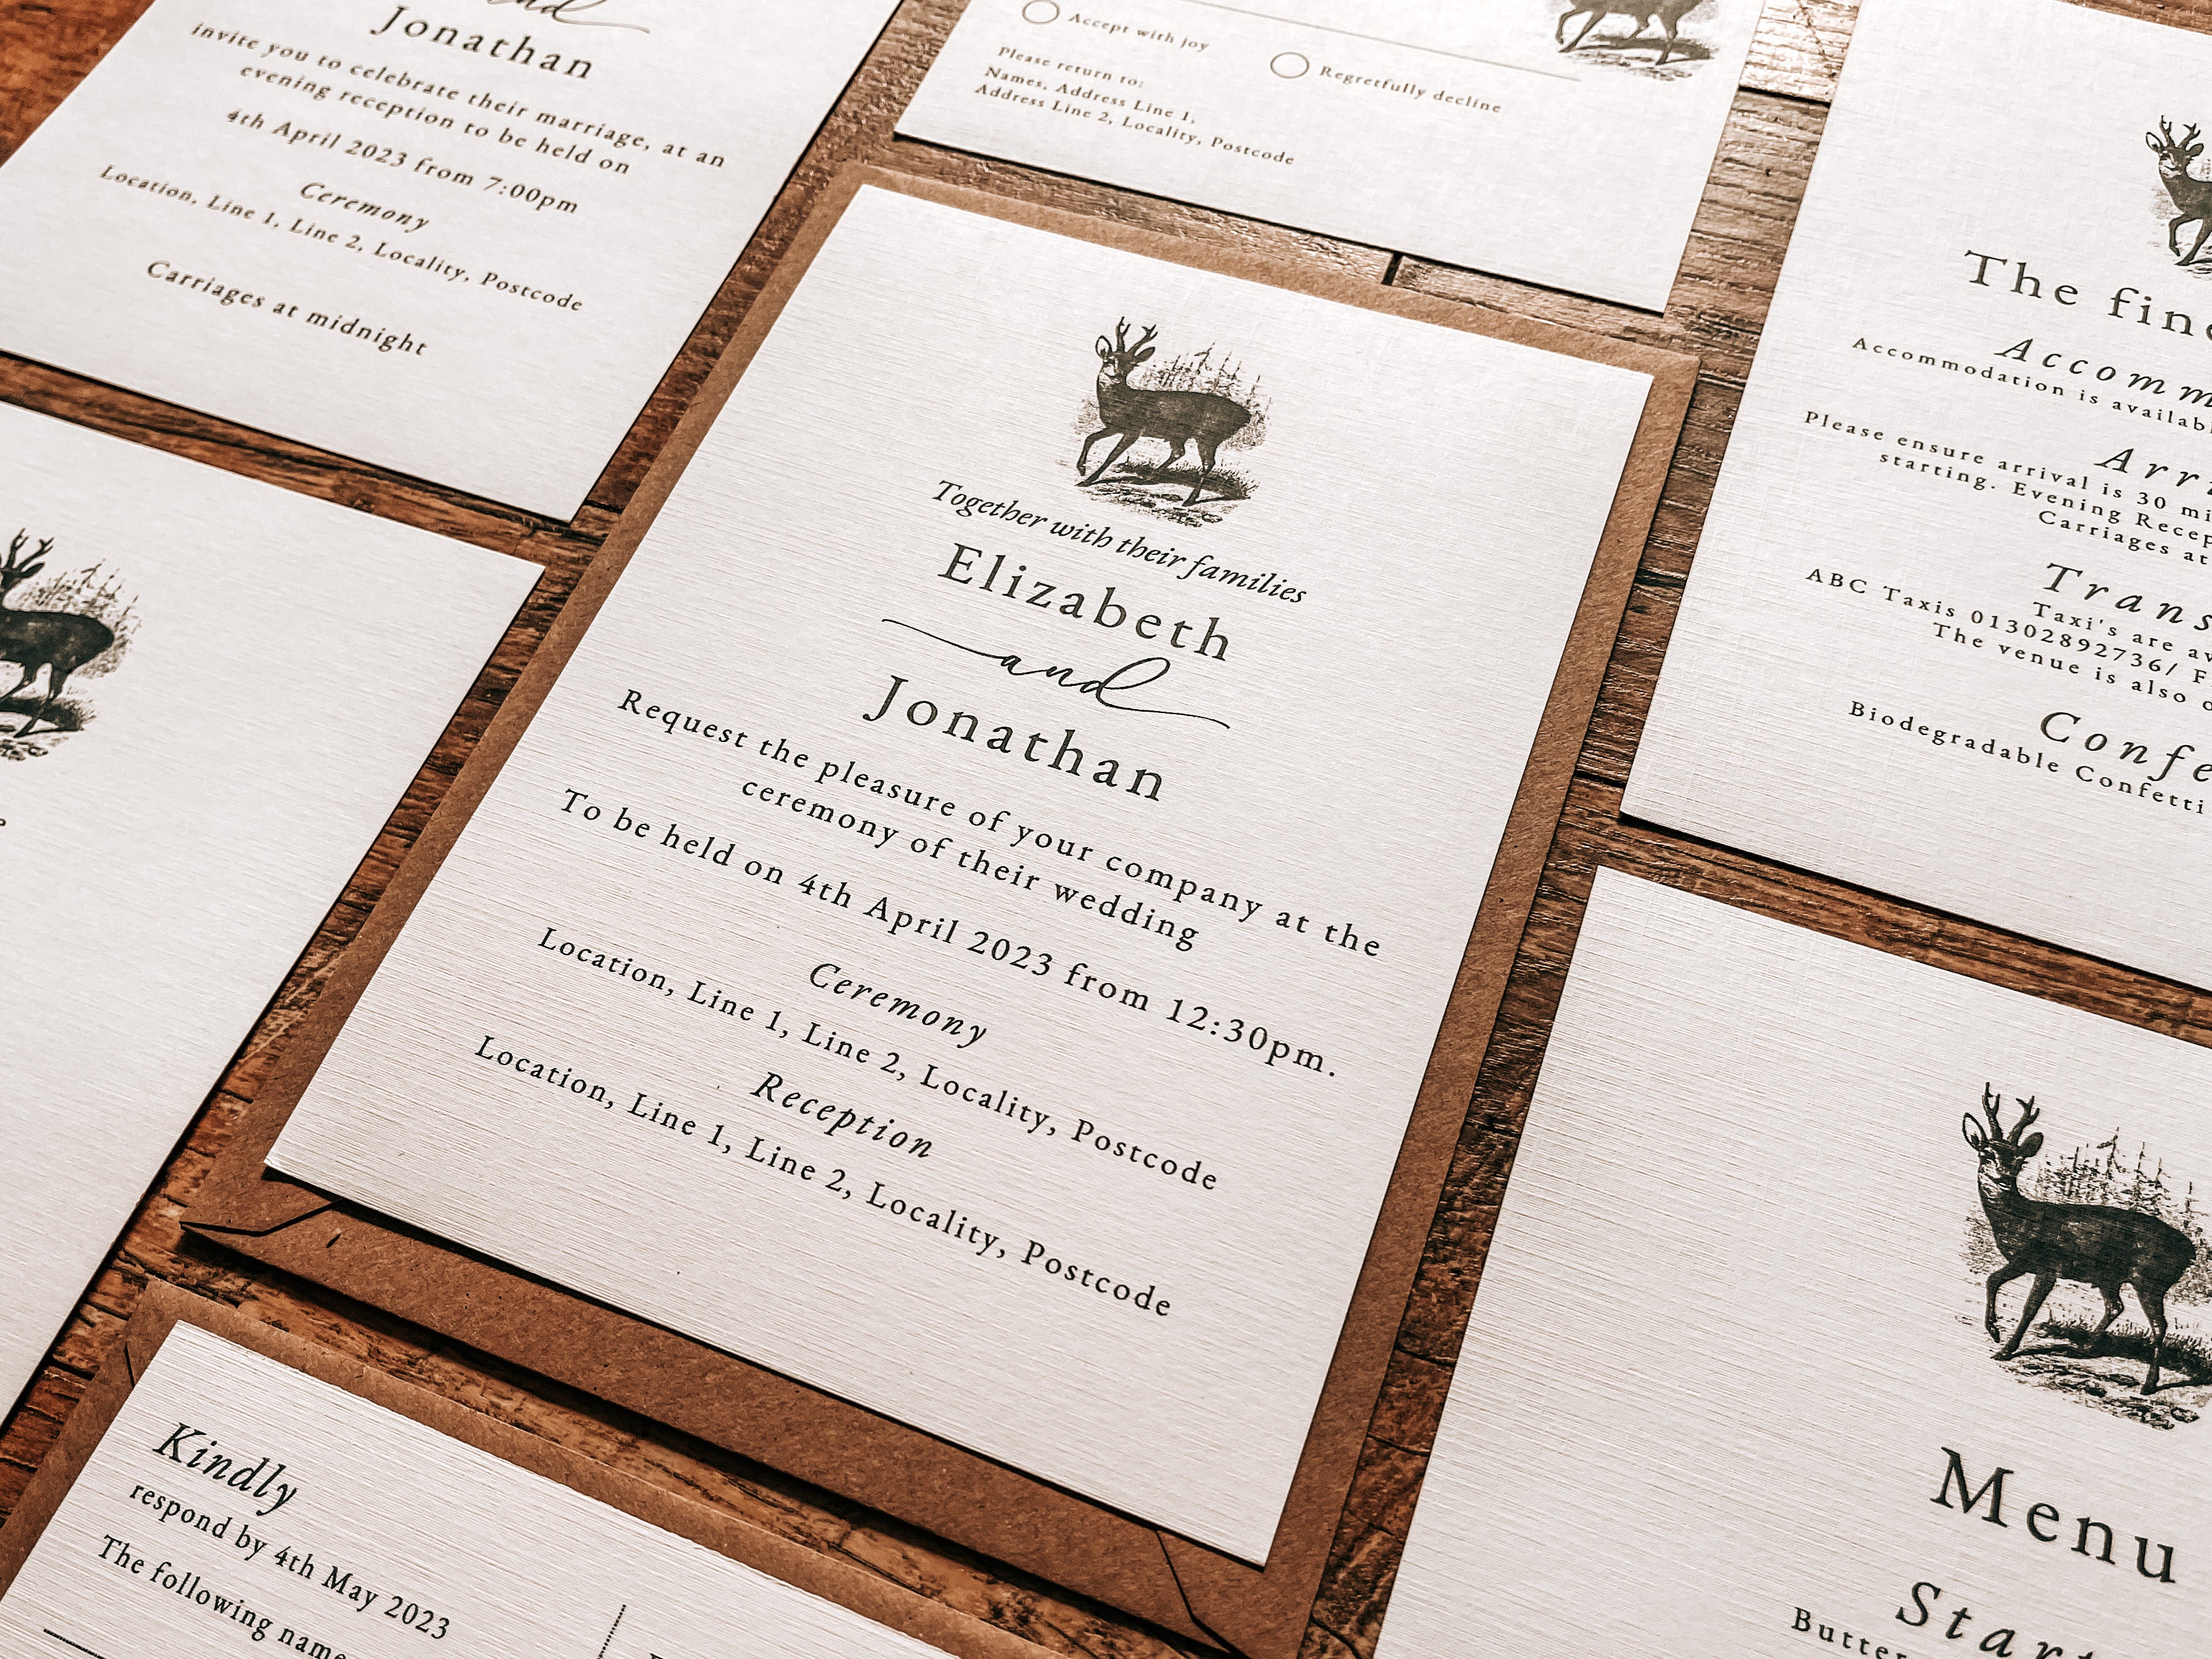 and
Jonathan
invite you to celebrate their marriage, at an
evening reception to be held on
4th April 2023 from 7:00pm
Ceremony
Location, Line 1, Line 2, Locality, Postcode
Carriages at midnight
Accept with joy
Regretfully decline
Please return to:
Names, Address Line 1,
Address Line 2, Locality, Postcode
Together with their families
Elizabeth
and
Jonathan
Request the pleasure of your company at the
ceremony of their wedding
To be held on 4th April 2023 from 12:30pm.
Ceremony
Location, Line 1, Line 2, Locality, Postcode
Reception
Location, Line 1, Line 2, Locality, Postcode
The
Accommodation is
Please ensure arrival is 30
starting. Evening
Carriages at
Taxi's are
ABC Taxis 01302892736/
The venue is also
Biodegradable Confetti
Kindly
respond by 4th May 2023
The following
Menu